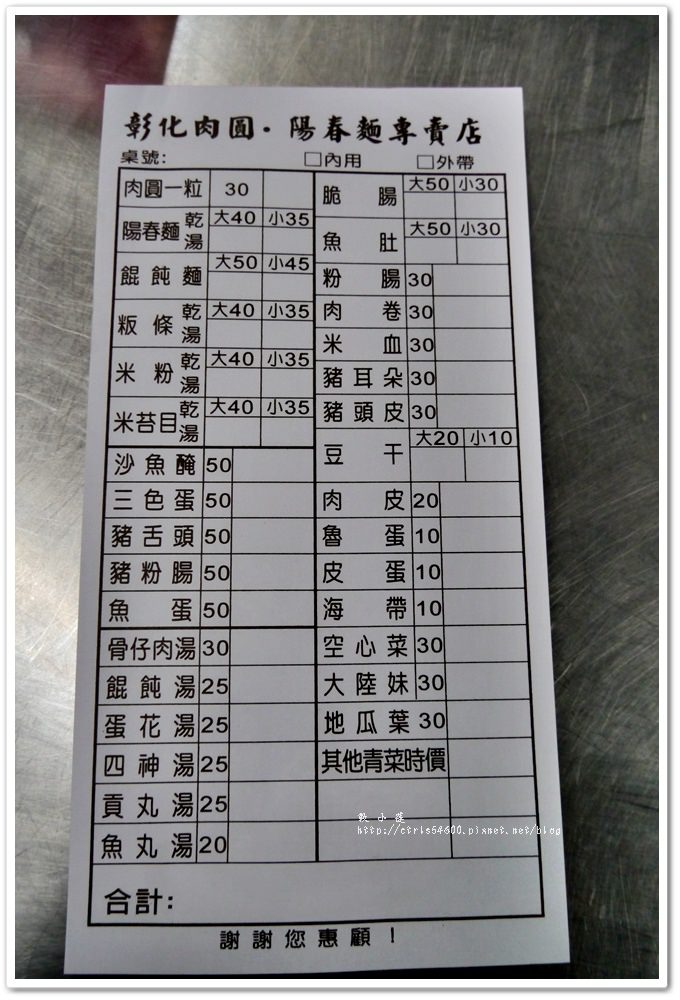 彰化肉圓·陽春麵專賣店
桌號: □內用 □外帶
肉圓一粒 30
陽春麵 乾 湯 大40 小35
餛飩麵 大50 小45
粄條 乾 湯 大40 小35
米粉 乾 湯 大40 小35
米苔目 乾 湯 大40 小35
沙魚醃 50
三色蛋 50
豬舌頭 50
豬粉腸 50
魚蛋 50
骨仔肉湯 30
餛飩湯 25
蛋花湯 25
四神湯 25
貢丸湯 25
魚丸湯 20
脆腸 大50 小30
魚肚 大50 小30
粉腸 30
肉卷 30
米血 30
豬耳朵 30
豬頭皮 30
豆干 大20 小10
肉皮 20
魯蛋 10
皮蛋 10
海帶 10
空心菜 30
大陸妹 30
地瓜葉 30
其他青菜時價
合計:
謝謝您惠顧!
http://ctrls64600.pixnet.net/blog